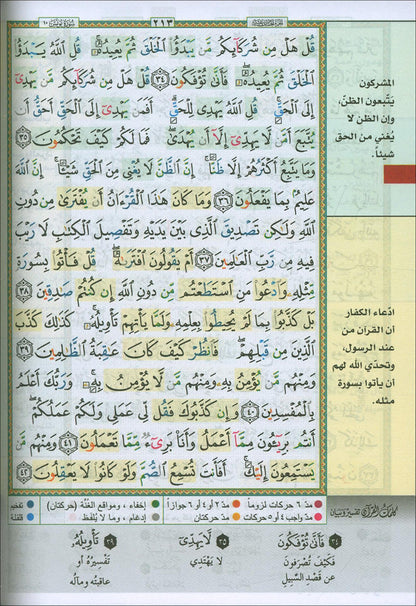 سُورَةُ يُونُسَ ١٠
٢١٣
الجُزْءُ الحَادِي عَشَرَ
قُلْ هَلْ مِن شُرَكَآئِكُم مَّن يَبْدَؤُا۟ ٱلْخَلْقَ ثُمَّ يُعِيدُهُۥ ۚ قُلِ ٱللَّهُ يَبْدَؤُا۟
ٱلْخَلْقَ ثُمَّ يُعِيدُهُۥ ۖ فَأَنَّىٰ تُؤْفَكُونَ ٣٤ قُلْ هَلْ مِن شُرَكَآئِكُم مَّن يَهْدِىٓ
إِلَى ٱلْحَقِّ ۚ قُلِ ٱللَّهُ يَهْدِى لِلْحَقِّ ۗ أَفَمَن يَهْدِىٓ إِلَى ٱلْحَقِّ أَحَقُّ أَن
يُتَّبَعَ أَمَّن لَّا يَهِدِّىٓ إِلَّآ أَن يُهْدَىٰ ۖ فَمَا لَكُمْ كَيْفَ تَحْكُمُونَ ٣٥
وَمَا يَتَّبِعُ أَكْثَرُهُمْ إِلَّا ظَنًّا ۚ إِنَّ ٱلظَّنَّ لَا يُغْنِى مِنَ ٱلْحَقِّ شَيْـًٔا ۚ إِنَّ ٱللَّهَ
عَلِيمٌۢ بِمَا يَفْعَلُونَ ٣٦ وَمَا كَانَ هَـٰذَا ٱلْقُرْءَانُ أَن يُفْتَرَىٰ مِن دُونِ
ٱللَّهِ وَلَـٰكِن تَصْدِيقَ ٱلَّذِى بَيْنَ يَدَيْهِ وَتَفْصِيلَ ٱلْكِتَـٰبِ لَا رَيْبَ
فِيهِ مِن رَّبِّ ٱلْعَـٰلَمِينَ ٣٧ أَمْ يَقُولُونَ ٱفْتَرَىٰهُ ۖ قُلْ فَأْتُوا۟ بِسُورَةٍ
مِّثْلِهِۦ وَٱدْعُوا۟ مَنِ ٱسْتَطَعْتُم مِّن دُونِ ٱللَّهِ إِن كُنتُمْ صَـٰدِقِينَ ٣٨
بَلْ كَذَّبُوا۟ بِمَا لَمْ يُحِيطُوا۟ بِعِلْمِهِۦ وَلَمَّا يَأْتِهِمْ تَأْوِيلُهُۥ ۚ كَذَٰلِكَ كَذَّبَ
ٱلَّذِينَ مِن قَبْلِهِمْ ۖ فَٱنظُرْ كَيْفَ كَانَ عَـٰقِبَةُ ٱلظَّـٰلِمِينَ ٣٩
وَمِنْهُم مَّن يُؤْمِنُ بِهِۦ وَمِنْهُم مَّن لَّا يُؤْمِنُ بِهِۦ ۚ وَرَبُّكَ أَعْلَمُ
بِٱلْمُفْسِدِينَ ٤٠ وَإِن كَذَّبُوكَ فَقُل لِّى عَمَلِى وَلَكُمْ عَمَلُكُمْ ۖ
أَنتُم بَرِيٓـُٔونَ مِمَّآ أَعْمَلُ وَأَنَا۠ بَرِىٓءٌ مِّمَّا تَعْمَلُونَ ٤١ وَمِنْهُم مَّن
يَسْتَمِعُونَ إِلَيْكَ ۚ أَفَأَنتَ تُسْمِعُ ٱلصُّمَّ وَلَوْ كَانُوا۟ لَا يَعْقِلُونَ ٤٢
المشركون
يتّبعون الظنّ،
وإن الظن لا
يُغني من الحق
شيئاً.
ادّعاء الكفار
أن القرآن من
عند الرسول،
وتحدّي الله لهم
أن يأتوا بسورة
مثله.
مدّ ٦ حركات لزوماً مدّ ٢ أو ٤ أو ٦ جوازاً إخفاء، ومواقع الغُنَّة (حركتان) تفخيم
مدّ واجب ٤ أو ٥ حركات مدّ حركتان إدغام، وما لا يُلفَظ قلقلة
كلمات القرآن تفسير وبيان
٣٤ فَأَنَّىٰ تُؤْفَكُونَ
فَكَيْفَ تُصْرَفُونَ
عن قَصْدِ السَّبِيلِ
٣٥ لَا يَهِدِّىٓ
لا يَهْتَدِي
٣٩ تَأْوِيلُهُۥ
تَفْسِيرُهُ أو
عاقبتُه ومآلُه